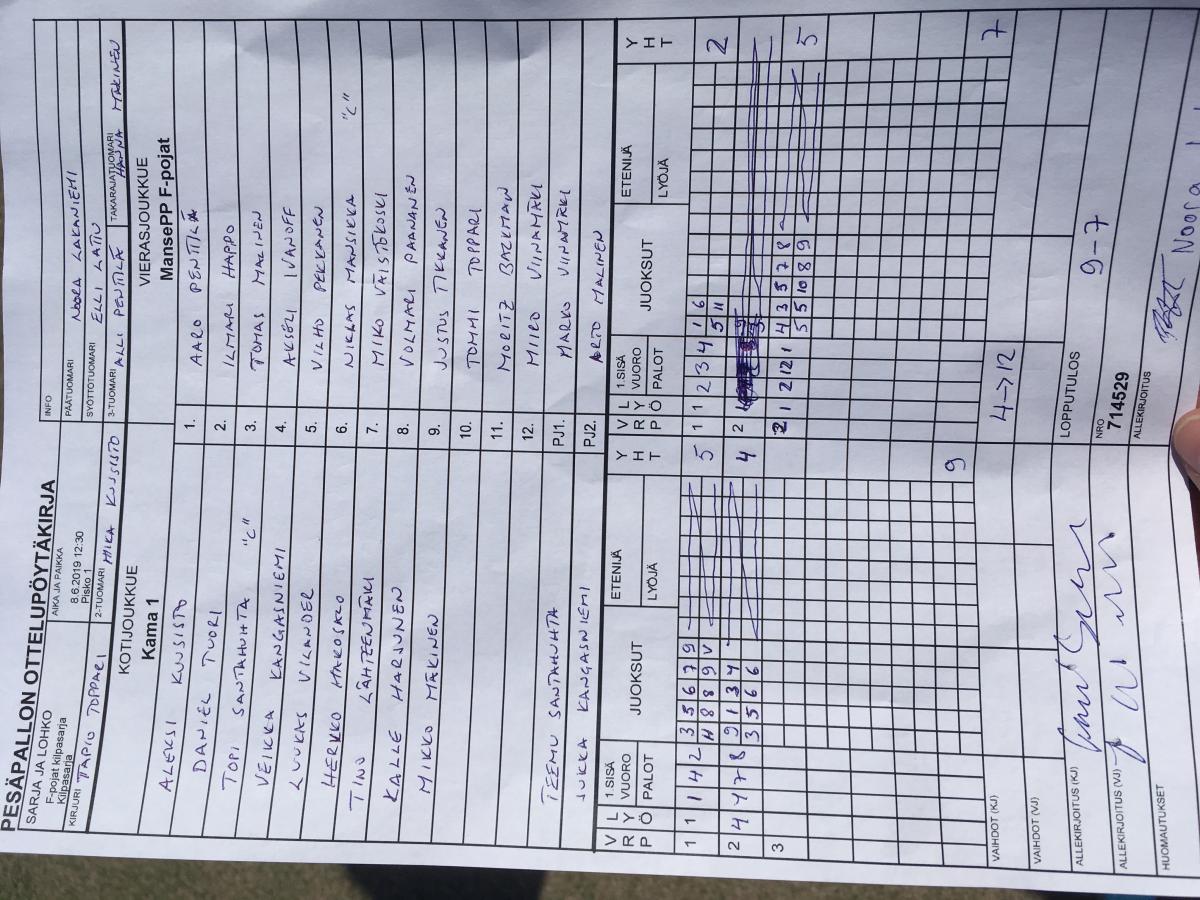 PESÄPALLON OTTELUPÖYTÄKIRJA
SARJA JA LOHKO
F-pojat kilpasarja
Kilpasarja
AIKA JA PAIKKA
8.6.2019 12:30
Pisko 1
INFO
PÄÄTUOMARI NOORA LAKANIEMI
SYÖTTÖTUOMARI ELLI LATTU
KIRJURI TAPIO TOPPARI
2-TUOMARI MIKA KUUSISTO
3-TUOMARI ALLI PENTTILÄ
TAKARAJATUOMARI HANNA MÄKINEN
KOTIJOUKKUE
Kama 1
VIERASJOUKKUE
MansePP F-pojat
ALEKSI KUUSISTO 1. AARO PENTTILÄ
DANIEL TUORI 2. ILMARI HAPPO
TOPI SANTAHUHTA "C" 3. TOMAS MALINEN
VEIKKA KANGASNIEMI 4. AKSELI IVANOFF
LUUKAS VILANDER 5. VILHO PEKKANEN
HERKKO HAKOSKO 6. NIKLAS MANSIKKA "C"
TINO LÄHTEENMÄKI 7. MIKO VÄISTÖKOSKI
KALLE HARJUNEN 8. VOLMARI PAANANEN
MIKKO MÄKINEN 9. JUSTUS TIKKANEN
10. TOMMI TOPPARI
11. MORITZ BACKMAN
12. MIIRO VIINAMÄKI
TEEMU SANTAHUHTA PJ1. MARKO VIINAMÄKI
JUKKA KANGASNIEMI PJ2. ARTO MALINEN
V R P L Y Ö 1.SISÄ VUORO PALOT JUOKSUT ETENIJÄ LYÖJÄ Y H T
V R P L Y Ö 1.SISÄ VUORO PALOT JUOKSUT ETENIJÄ LYÖJÄ Y H T
1 1 1 4 2 3 5 6 7 9 5
H 8 8 9 V
2 4 4 7 8 9 1 3 4 4
3 5 6 6
3
9
1 1 2 3 4 1 6 2
5 11
2
2 1 2 12 1 4 3 5 7 8 5
5 5 10 8 9
7
VAIHDOT (KJ) 4→12
VAIHDOT (VJ)
ALLEKIRJOITUS (KJ)
LOPPUTULOS 9-7
ALLEKIRJOITUS (VJ)
NRO
714529
HUOMAUTUKSET
ALLEKIRJOITUS
Noora